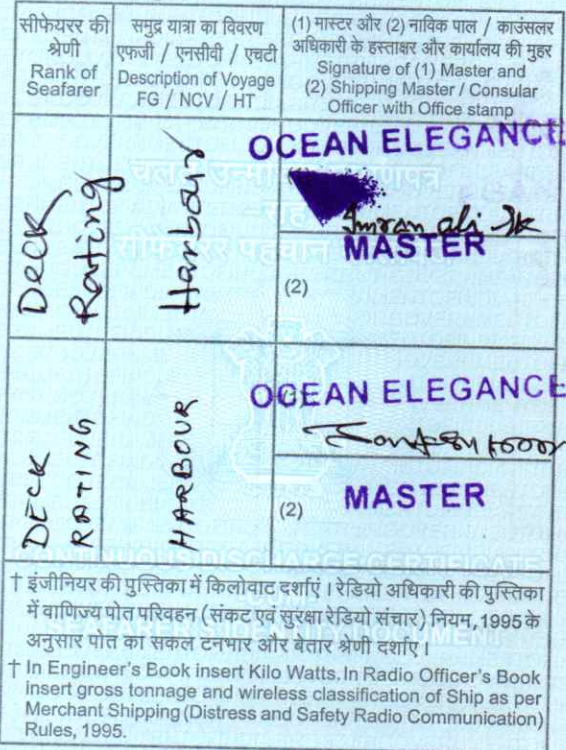 सीफेयरर की श्रेणी
Rank of Seafarer
समुद्र यात्रा का विवरण
एफजी / एनसीवी / एचटी
Description of Voyage
FG / NCV / HT
(1) मास्टर और (2) नाविक पाल / काउंसलर
अधिकारी के हस्ताक्षर और कार्यालय की मुहर
Signature of (1) Master and
(2) Shipping Master / Consular
Officer with Office stamp
Deck
Rating
Harbour
OCEAN ELEGANCE
Imran ali Sk
MASTER
(2)
DECK
RATING
HARBOUR
OCEAN ELEGANCE
MASTER
(2)
CONTINUOUS DISCHARGE CERTIFICATE
SEAFARER'S IDENTITY DOCUMENT
† इंजीनियर की पुस्तिका में किलोवाट दर्शाएं । रेडियो अधिकारी की पुस्तिका
में वाणिज्य पोत परिवहन (संकट एवं सुरक्षा रेडियो संचार) नियम,1995 के
अनुसार पोत का सकल टनभार और बेतार श्रेणी दर्शाए ।
† In Engineer's Book insert Kilo Watts, In Radio Officer's Book
insert gross tonnage and wireless classification of Ship as per
Merchant Shipping (Distress and Safety Radio Communication)
Rules, 1995.